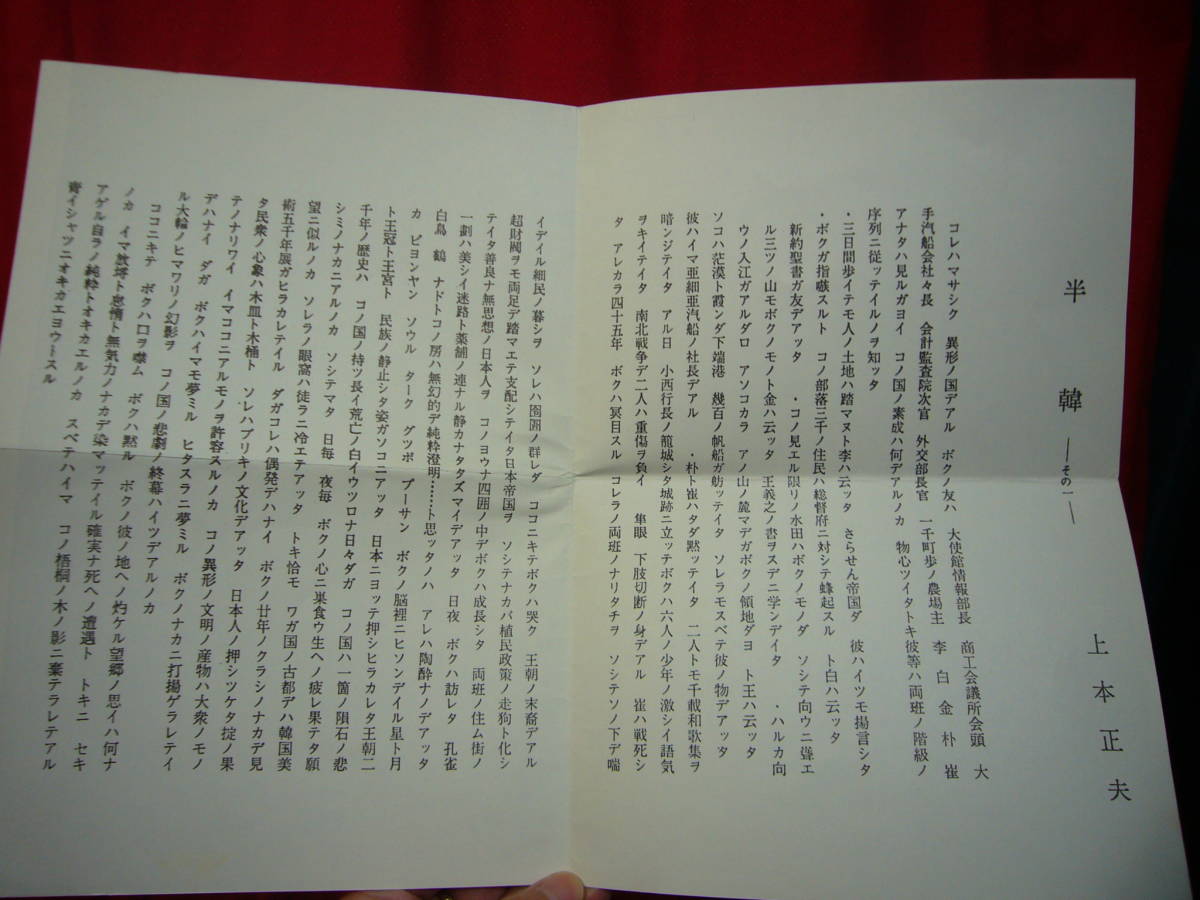 半韓 ―その一―
上本正夫
コレハマサシク 異形ノ国デアル ボクノ友ハ 大使館情報部長 商工会議所会頭 大
手汽船会社々長 会計監査院次官 外交部長官 一千町歩ノ農場主 李 白 金 朴 崔
アナタハ見ルガヨイ コノ国ノ素成ハ何デアルノカ 物心ツイタトキ彼等ハ両班ノ階級ノ
序列ニ従ッテイルノヲ知ッタ
・三日間歩イテモ人ノ土地ハ踏マヌト李ハ云ッタ さらせん帝国ダ 彼ハイツモ揚言シタ
・ボクガ指嗾スルト コノ部落三千ノ住民ハ総督府ニ対シテ蜂起スル ト白ハ云ッタ
新約聖書ガ友デアッタ ・コノ見エル限リノ水田ハボクノモノダ ソシテ向ウニ聳エ
ル三ツノ山モボクノモノト金ハ云ッタ 王義之ノ書ヲスデニ学ンデイタ ・ハルカ向
ウノ入江ガアルダロ アソコカラ アノ山ノ麓マデガボクノ領地ダヨ ト王ハ云ッタ
ソコハ茫漠ト霞ンダ下端港 幾百ノ帆船ガ舫ッテイタ ソレラモスベテ彼ノ物デアッタ
彼ハイマ亜細亜汽船ノ社長デアル ・朴ト崔ハタダ黙ッテイタ 二人トモ千載和歌集ヲ
暗ンジテイタ アル日 小西行長ノ籠城シタ城跡ニ立ッテボクハ六人ノ少年ノ激シイ語気
ヲキイテイタ 南北戦争デ二人ハ重傷ヲ負イ 隼眼 下肢切断ノ身デアル 崔ハ戦死シ
タ アレカラ四十五年 ボクハ冥目スル コレラノ両班ノナリタチヲ ソシテソノ下デ喘
イデイル細民ノ暮シヲ ソレハ囹圄ノ群レダ ココニキテボクハ哭ク 王朝ノ末裔デアル
超財閥ヲモ両足デ踏マエテ支配シテイタ日本帝国ヲ ソシテナカバ植民政策ノ走狗ト化シ
テイタ善良ナ無思想ノ日本人ヲ コノヨウナ四囲ノ中デボクハ成長シタ 両班ノ住ム街ノ
一劃ハ美シイ迷路ト薬舗ノ連ナル静カナタタズマイデアッタ 日夜 ボクハ訪レタ 孔雀
白鳥 鶴 ナドトコノ房ハ無幻的デ純粋澄明……ト思ッタノハ アレハ陶酔ナノデアッタ
カ ピヨンヤン ソウル ターク グツポ プーサン ボクノ脳裡ニヒソンデイル星ト月
ト王冠ト王宮ト 民族ノ静止シタ姿ガソコニアッタ 日本ニヨッテ押シヒラカレタ王朝二
千年ノ歴史ハ コノ国ノ持ツ長イ荒亡ノ白イウツロナ日々ダガ コノ国ハ一箇ノ隕石ノ悲
シミノナカニアルノカ ソシテマタ 日毎 夜毎 ボクノ心ニ巣食ウ生ヘノ疲レ果テタ願
望ニ似ルノカ ソレラノ眼窩ハ徒ラニ冷エテアッタ トキ恰モ ワガ国ノ古都デハ韓国美
術五千年展ガヒラカレテイル ダガコレハ偶発デハナイ ボクノ廿年ノクラシノナカデ見
タ民衆ノ心象ハ木皿ト木桶ト ソレハブリキノ文化デアッタ 日本人ノ押シツケタ掟ノ果
テノナリワイ イマココニアルモノヲ許容スルノカ コノ異形ノ文明ノ産物ハ大衆ノモノ
デハナイ ダガ ボクハイマモ夢ミル ヒタスラニ夢ミル ボクノナカニ打揚ゲラレテイ
ル大輪ノヒマワリノ幻影ヲ コノ国ノ悲劇ノ終幕ハイツデアルノカ
ココニキテ ボクハ口ヲ噤ム ボクハ黙ル ボクノ彼ノ地ヘノ灼ケル望郷ノ思イハ何ナ
ノカ イマ放埒ト怠惰ト無気力ノナカデ染マッテイル確実ナ死ヘノ遭遇ト トキニ セキ
アゲル自ラノ純粋トオキカエルノカ スベテハイマ コノ梧桐ノ木ノ影ニ棄テラレテアル
青イシャツニオキカエヨウトスル